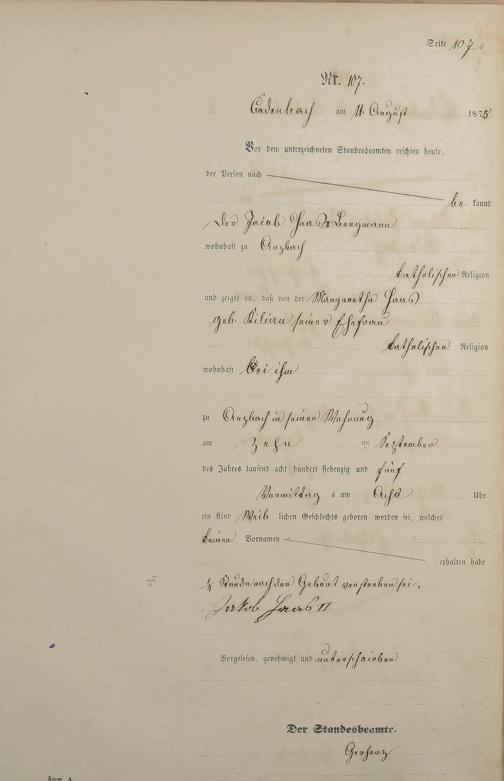 Seite 107.
Nr. 107.
Cadenbach am 11. August 1875
Vor dem unterzeichneten Standesbeamten erschien heute,
der Person nach
be kannt
Der Jacob Haas II Bergmann
wohnhaft zu Arzbach
katholischen Religion
und zeigte an, daß von der Margaretha Haas
geb. Kilian seiner Ehefrau
katholischen Religion
wohnhaft bei ihm
zu Arzbach in seiner Wohnung
am zehn im September
des Jahres tausend acht hundert siebenzig und fünf
Vormittag s um Acht Uhr
ein Kind Weib lichen Geschlechts geboren worden sei, welches
keinen Vornamen
erhalten habe
½ Stunde nach der Geburt verstorben sei.
Jakob Haas II
Vorgelesen, genehmigt und unterschrieben
Der Standesbeamte.
Form. A.